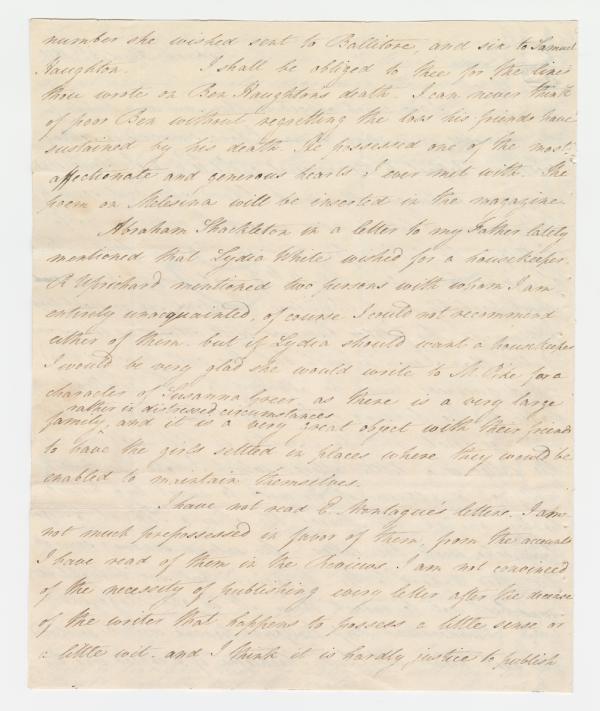 number she wished sent to Ballitore, and six to Samuel
Haughton. I shall be obliged to thee for the lines
thou wrote on Ben Haughtons death. I can never think
of poor Ben without regretting the loss his friends have
sustained by his death. He possessed one of the most
affectionate and generous hearts I ever met with. The
poem on Melesina will be inserted in the magazine
Abraham Shackleton in a letter to my Father lately
mentioned that Lydia White wished for a housekeeper.
R Uprichard mentioned two persons with whom I am
entirely unacquainted, of course I could not recommend
either of them. but if Lydia should want a housekeeper
I would be very glad she would write to M. for a
character of Susanna Greer, as there is a very large
rather in distressed circumstances
family, and it is a very great object with their friends
to have the girls settled in places where they would be
enabled to maintain themselves.
I have not read E. Montague's letters. I am
not much prepossessed in favor of them, from the accounts
I have read of them in the Reviews. I am not convinced
of the necessity of publishing every letter after the decease
of the writer that happens to possess a little sense or
a little wit. and I think it is hardly justice to publish